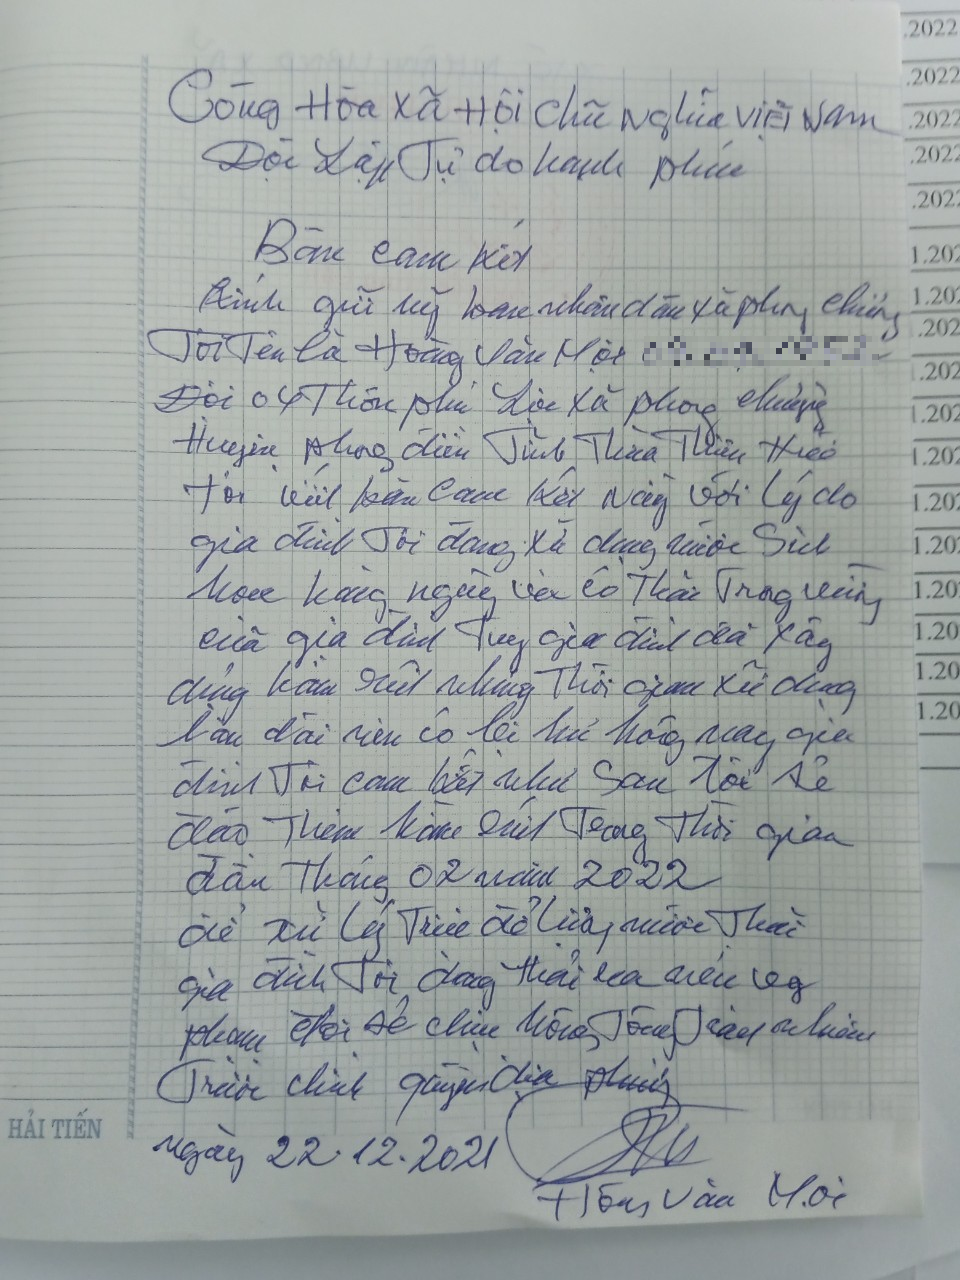 Cộng Hòa Xã Hội Chũ Nghĩa Việt Nam
Độc Lập Tự do hạnh phúc
Bãn cam kết
Kính gữi uỹ ban nhân dân xã phong chương
Tôi Tên là Hoàng Văn Mọi
Đội 04 Thôn phú Lộc xã phong chương
Huyện phong điền Tĩnh Thừa Thiên Huế
tôi viết bãn cam kết này với lý do
gia đình Tôi đang xữ dụng nước Sinh
hoạt hàng ngày và có Thãi Trong vườn
cũa gia đình Tuy gia đình đã xây
dựng hầm rút nhưng Thời gian xữ dụng
lâu dài nên có bị hư hõng nay gia
đình Tôi cam kết như sau Tôi sẽ
đào Thêm hầm rút Trong Thời gian
đầu Tháng 02 năm 2022
để xữ lý Triệt để lượng nước Thãi
gia đình Tôi đang thãi ra nếu vy
phạm Tôi sẽ chịu hoàng Toàng Trách nhiệm
Trước chính quyền địa phương
ngày 22.12.2021
Hoàng Văn Mọi
HẢI TIẾN
.2022
.2022
.2022
.2022
.2022
1.202
1.202
.202
.202
1.202
1.202
1.202
1.202
1.20
1.20
1.20
1.20